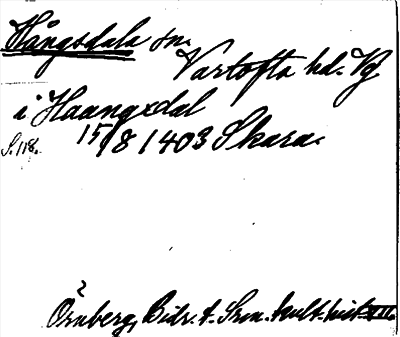 Hångsdala sn.
Vartofta hd. Vg
i Haangxdal
15/8 1403 Skara.
S. 118.
Örnberg, Bidr. t. Srm. kult. hist. VIII